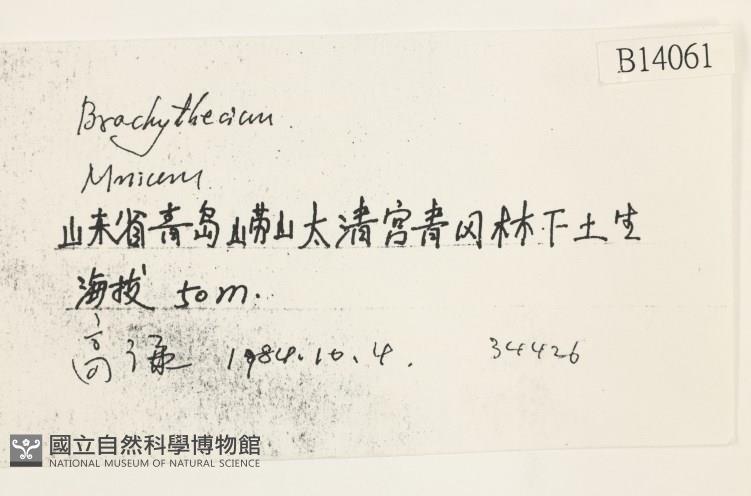 B14061
Brachythecium
Mnium
山东省青岛崂山太清宫青冈林下土生
海拔 50m.
高谦 1984.10.4. 34426
國立自然科學博物館
NATIONAL MUSEUM OF NATURAL SCIENCE